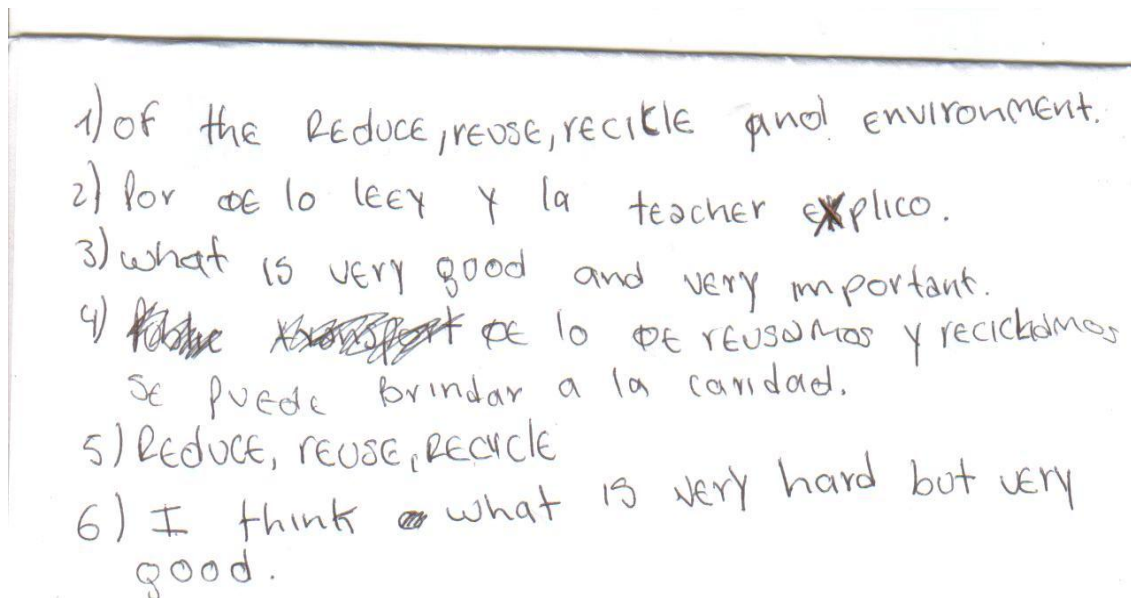 1) of the Reduce, reuse, recikle and environment.
2) Por qe lo leey y la teacher explico.
3) what is very good and very important.
4) qe lo qe reusamos y reciclamos
se puede Brindar a la caridad.
5) Reduce, reuse, Recycle
6) I think what is very hard but very
good.